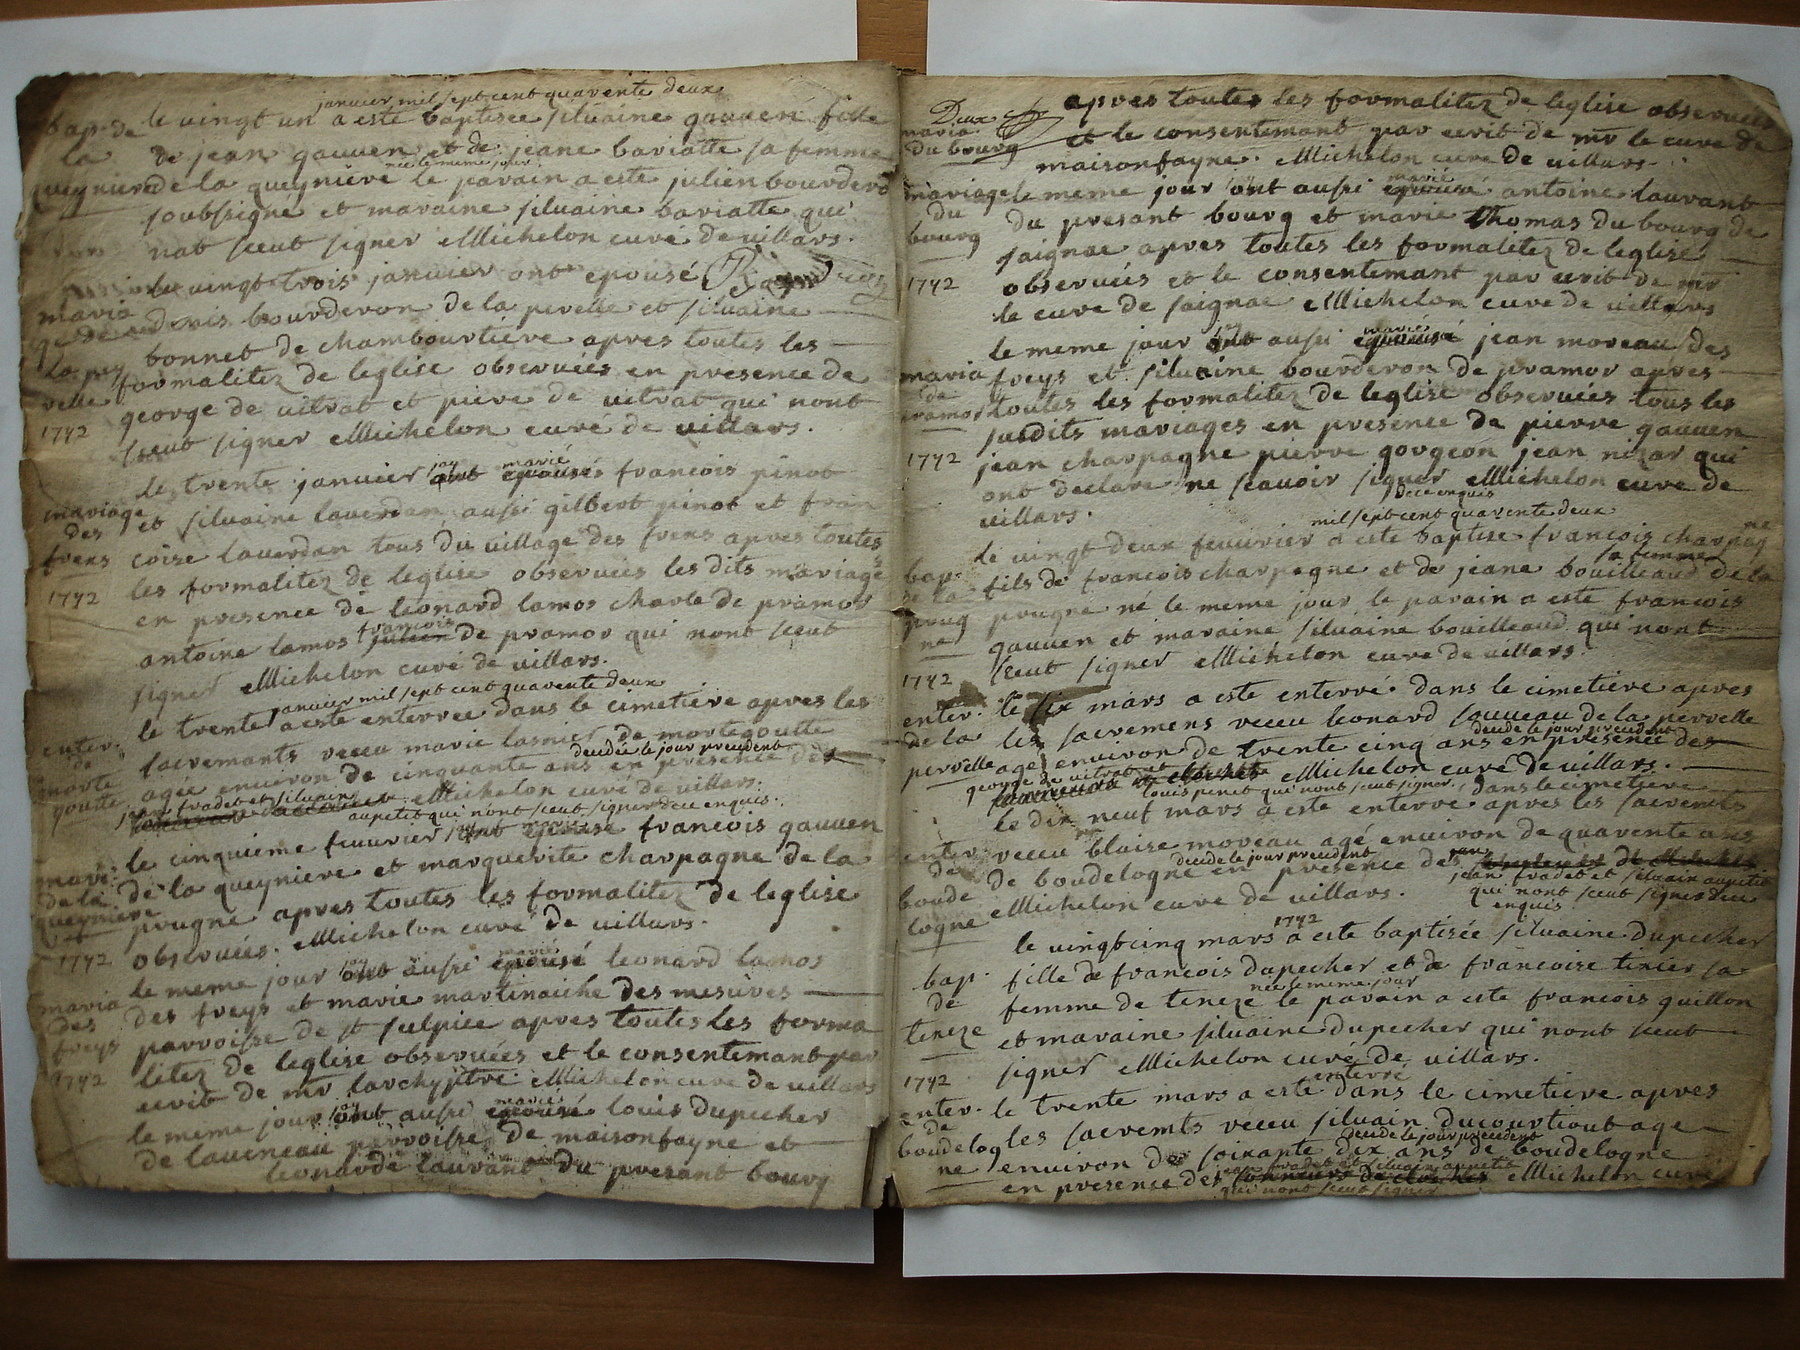 janvier mil sept cent quarente deux
bap. de le vingt un a este baptisee silvaine gauven fille
la de jean gauven et de jeane bariatte sa femme
née le meme jour
queyniere de la queyniere le parain a este julien bourderon
soubsigné et maraine silvaine bariatte qui
nat sceut signer Michelon curé de villars.
le vingt trois janvier ont epousé
maria denis bourderon de la perelle et silvaine
ge de
bonnet de chambourtiere apres toutes les
la per formalitez de leglise observées en presence de
relle george de vitrat et piere de vitrat qui nont
1742 sceut signer Michelon curé de villars.
jay marié
le trente janvier ont epousé francois pinot
mariage et silvaine laverdan aussi gilbert pinot et fran
des
freys coise laverdan tous du village des freys apres toutes
1742 les formalitez de leglise observées les dits mariages
en presence de leonard lamos charle de pramor
francois
antoine lamos julien de pramor qui nont sceut
signer Michelon curé de villars.
janvier mil sept cent quarente deux
le trente a este enterree dans le cimetiere apres les
enter. sacremants receu marie lasnier de mortegoutte
de
decedée le jour precedent
morte agée environ de cinquante ans en presence des
goutte Michelon curé de villars.
jean fradet et silvain
aupetit qui nont sceut signer de ce enquis.
jay marié
le cinquieme feuvrier ont epousé francois gauven
mari. de la queyniere et marguerite charpagne de la
de la
queyniere prugne apres toutes les formalitez de leglise
1742 observées. Michelon curé de villars.
jay marié
le meme jour ont aussi epousé leonard lamos
maria des freys et marie martinaiche des mesures
des parroisse de st sulpice apres toutes les forma
freys litez de leglise observées et le consentemant par
1742 ecrit de mr larchyptre Michelon cure de villars
jay marié
le meme jour ont aussi epousé louis dupecher
de lavineau parroisse de maisonfayne et
leonarde lauvant du presant bourg
Deux
maria. apres toutes les formalitez de leglise observées
du bourg et le consentemant par ecrit de mr le cure de
maisonfayne. Michelon cure de villars.
marié
mariage le meme jour ont aussi epousé antoine lauvant
du du presant bourg et marie thomas du bourg de
bourg saignac apres toutes les formalitez de leglise
1742 observuées et le consentemant par ecrit de mr
le cure de saignac Michelon cure de villars
jay mariés
le meme jour ont aussi epousé jean moreau des
maria freys et silvaine bourderon de pramor apres
de
pramor toutes les formalitez de leglise observuées tous les
susdits mariages en presence de pierre gauven
1742 jean charpagne pierre gorgeon jean nizar qui
ont declare ne scavoir signer Michelon cure de
de ce enquis
villars.
mil sept cent quarente deux
le vingt deux feuvrier a este baptise francois charpagne
sa femme
bap. fils de francois charpagne et de jeane bouilleaud de la
de la
prug prugne né le meme jour le parain a este francois
ne gauven et maraine silvaine bouilleaud qui nont
1742 sceut signer Michelon cure de villars.
enter. le six mars a este enterré dans le cimetiere apres
de la les sacremens receu leonard sauveau de la pervelle
decede le jour precedent
pervelle age environ de trente cinq ans en presence des
george de vitrat et Michelon curé de villars.
louis penet qui nont sceut signer
dans le cimetiere
le dix neuf mars a este enterre apres les sacremts
enter. receu blaise moreau agé environ de quarente ans
de
decede le jour precedent
boude de boudelogne en presence des
jean fradet et silvain aupetit
logne Michelon cure de villars.
qui nont sceut signer de ce
enquis
1742
le vingt cinq mars a este baptisée silvaine dupecher
bap. fille de francois dupecher et de francoise tixier sa
née le meme jour
de femme de teneze le parain a este francois guillon
teneze et maraine silvaine dupecher qui nont sceut
1742 signer Michelon curé de villars.
enterré
enter. le trente mars a este dans le cimetiere apres
de
boudelog les sacremts receu silvain ducourtiout age
decede le jour precedent
ne environ de soixante dix ans de boudelogne
jean fradet et silvain aupetit
en presence des sonneurs de cloches Michelon curé
qui nont sceut signer